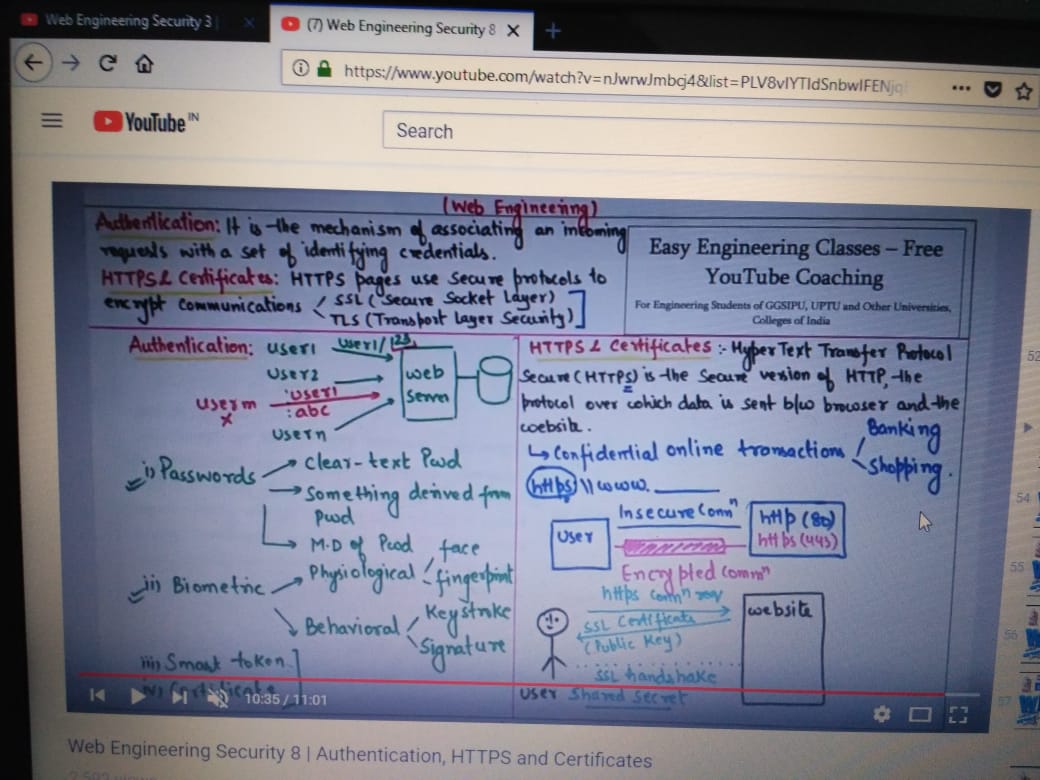 Web Engineering Security 3
(7) Web Engineering Security 8
https://www.youtube.com/watch?v=nJwrwJmbcj4&list=PLV8vIYTIdSnbwIFENjq
YouTube IN
Search
(Web Engineering)
Authentication: It is the mechanism of associating an incoming
requests with a set of identifying credentials.
HTTPS & Certificates: HTTPS pages use secure protocols to
encrypt communications
SSL (Secure Socket Layer)
TLS (Transport Layer Security)
Easy Engineering Classes – Free
YouTube Coaching
For Engineering Students of GGSIPU, UPTU and Other Universities,
Colleges of India
Authentication:
user1
user1/123
user2
userm
x
:user1
:abc
usern
web
server
i) Passwords
Clear-text Pwd
Something derived from
Pwd
M.D of Pwd
ii) Biometric
Physiological
face
fingerprint
Behavioral
Keystroke
Signature
iii) Smart token
iv) Certificate
HTTPS & Certificates :- HyperText Transfer Protocol
Secure (HTTPS) is the secure version of HTTP, the
protocol over which data is sent b/w browser and the
website.
Confidential online transactions
Banking
Shopping.
https \\ www.
User
Insecure Connⁿ
http (80)
https (443)
Encrypted commⁿ
https commⁿ req
SSL Certificate
(Public Key)
SSL handshake
Shared Secret
User
website
10:35 / 11:01
52
54
55
56
57
Web Engineering Security 8 | Authentication, HTTPS and Certificates